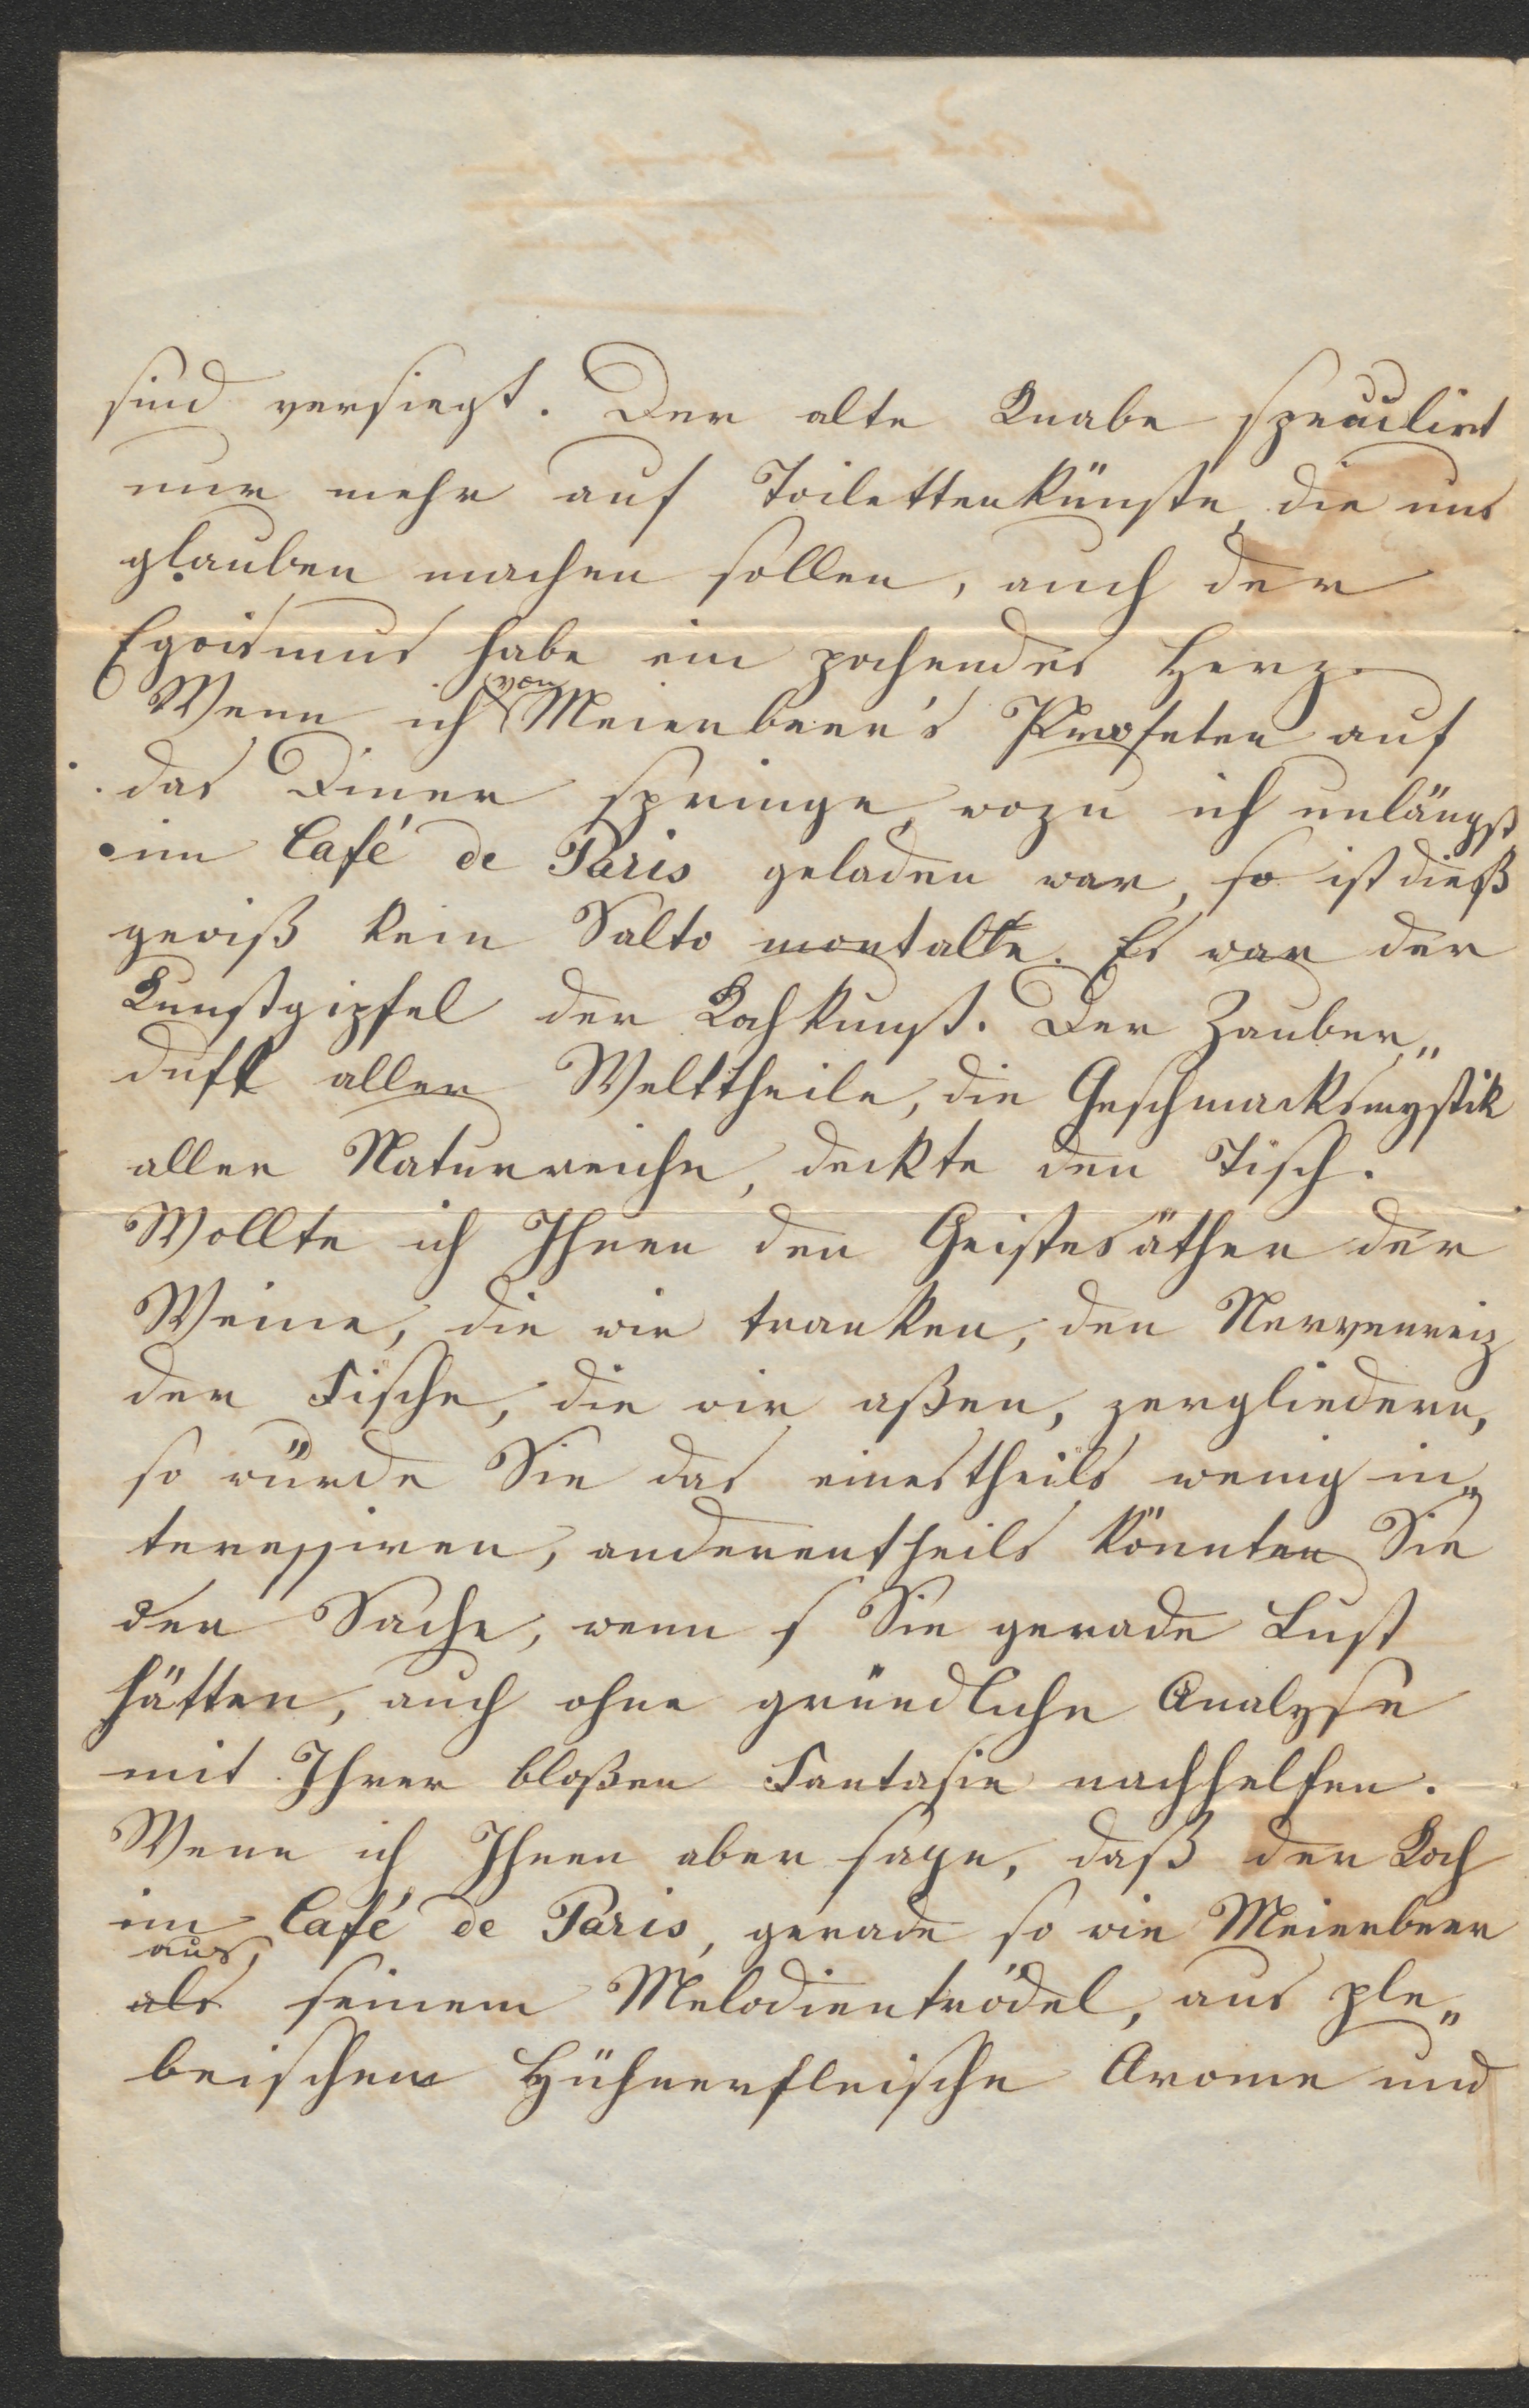 sind versiegt. Der alte Knabe speculirt
nur mehr auf Toilettenkünste, die uns
glauben machen sollen, auch der
Egoismus habe ein pochendes Herz.
Wenn ich von Meierbeer's Profeten auf
das Diner springe, wozu ich unlängst
im Café de Paris geladen war, so ist dieß
gewiß kein Salto mortalte. Es war der
Kunstgipfel der Kochkunst. Der Zauber„
duft aller Welttheile, die Geschmacksmystik
aller Naturreiche, deckte den Tisch.
Wollte ich Ihnen den Geistesäther der
Weine, die wir tranken, den Nervenreiz
der Fische, die wir aßen, zergliedern,
so würde Sie das einestheils wenig in„
teressiren, anderentheils könnten Sie
der Sache, wenn s Sie gerade Lust
hätten, auch ohne gründliche Analyse
mit Ihrer bloßen Fantasie nachhelfen.
Wenn ich Ihnen aber sage, daß der Koch
im Café de Paris, gerade so wie Meierbeer
aus
als seinem Melodientrödel, aus ple„
beischem Hühnerfleische Arome und